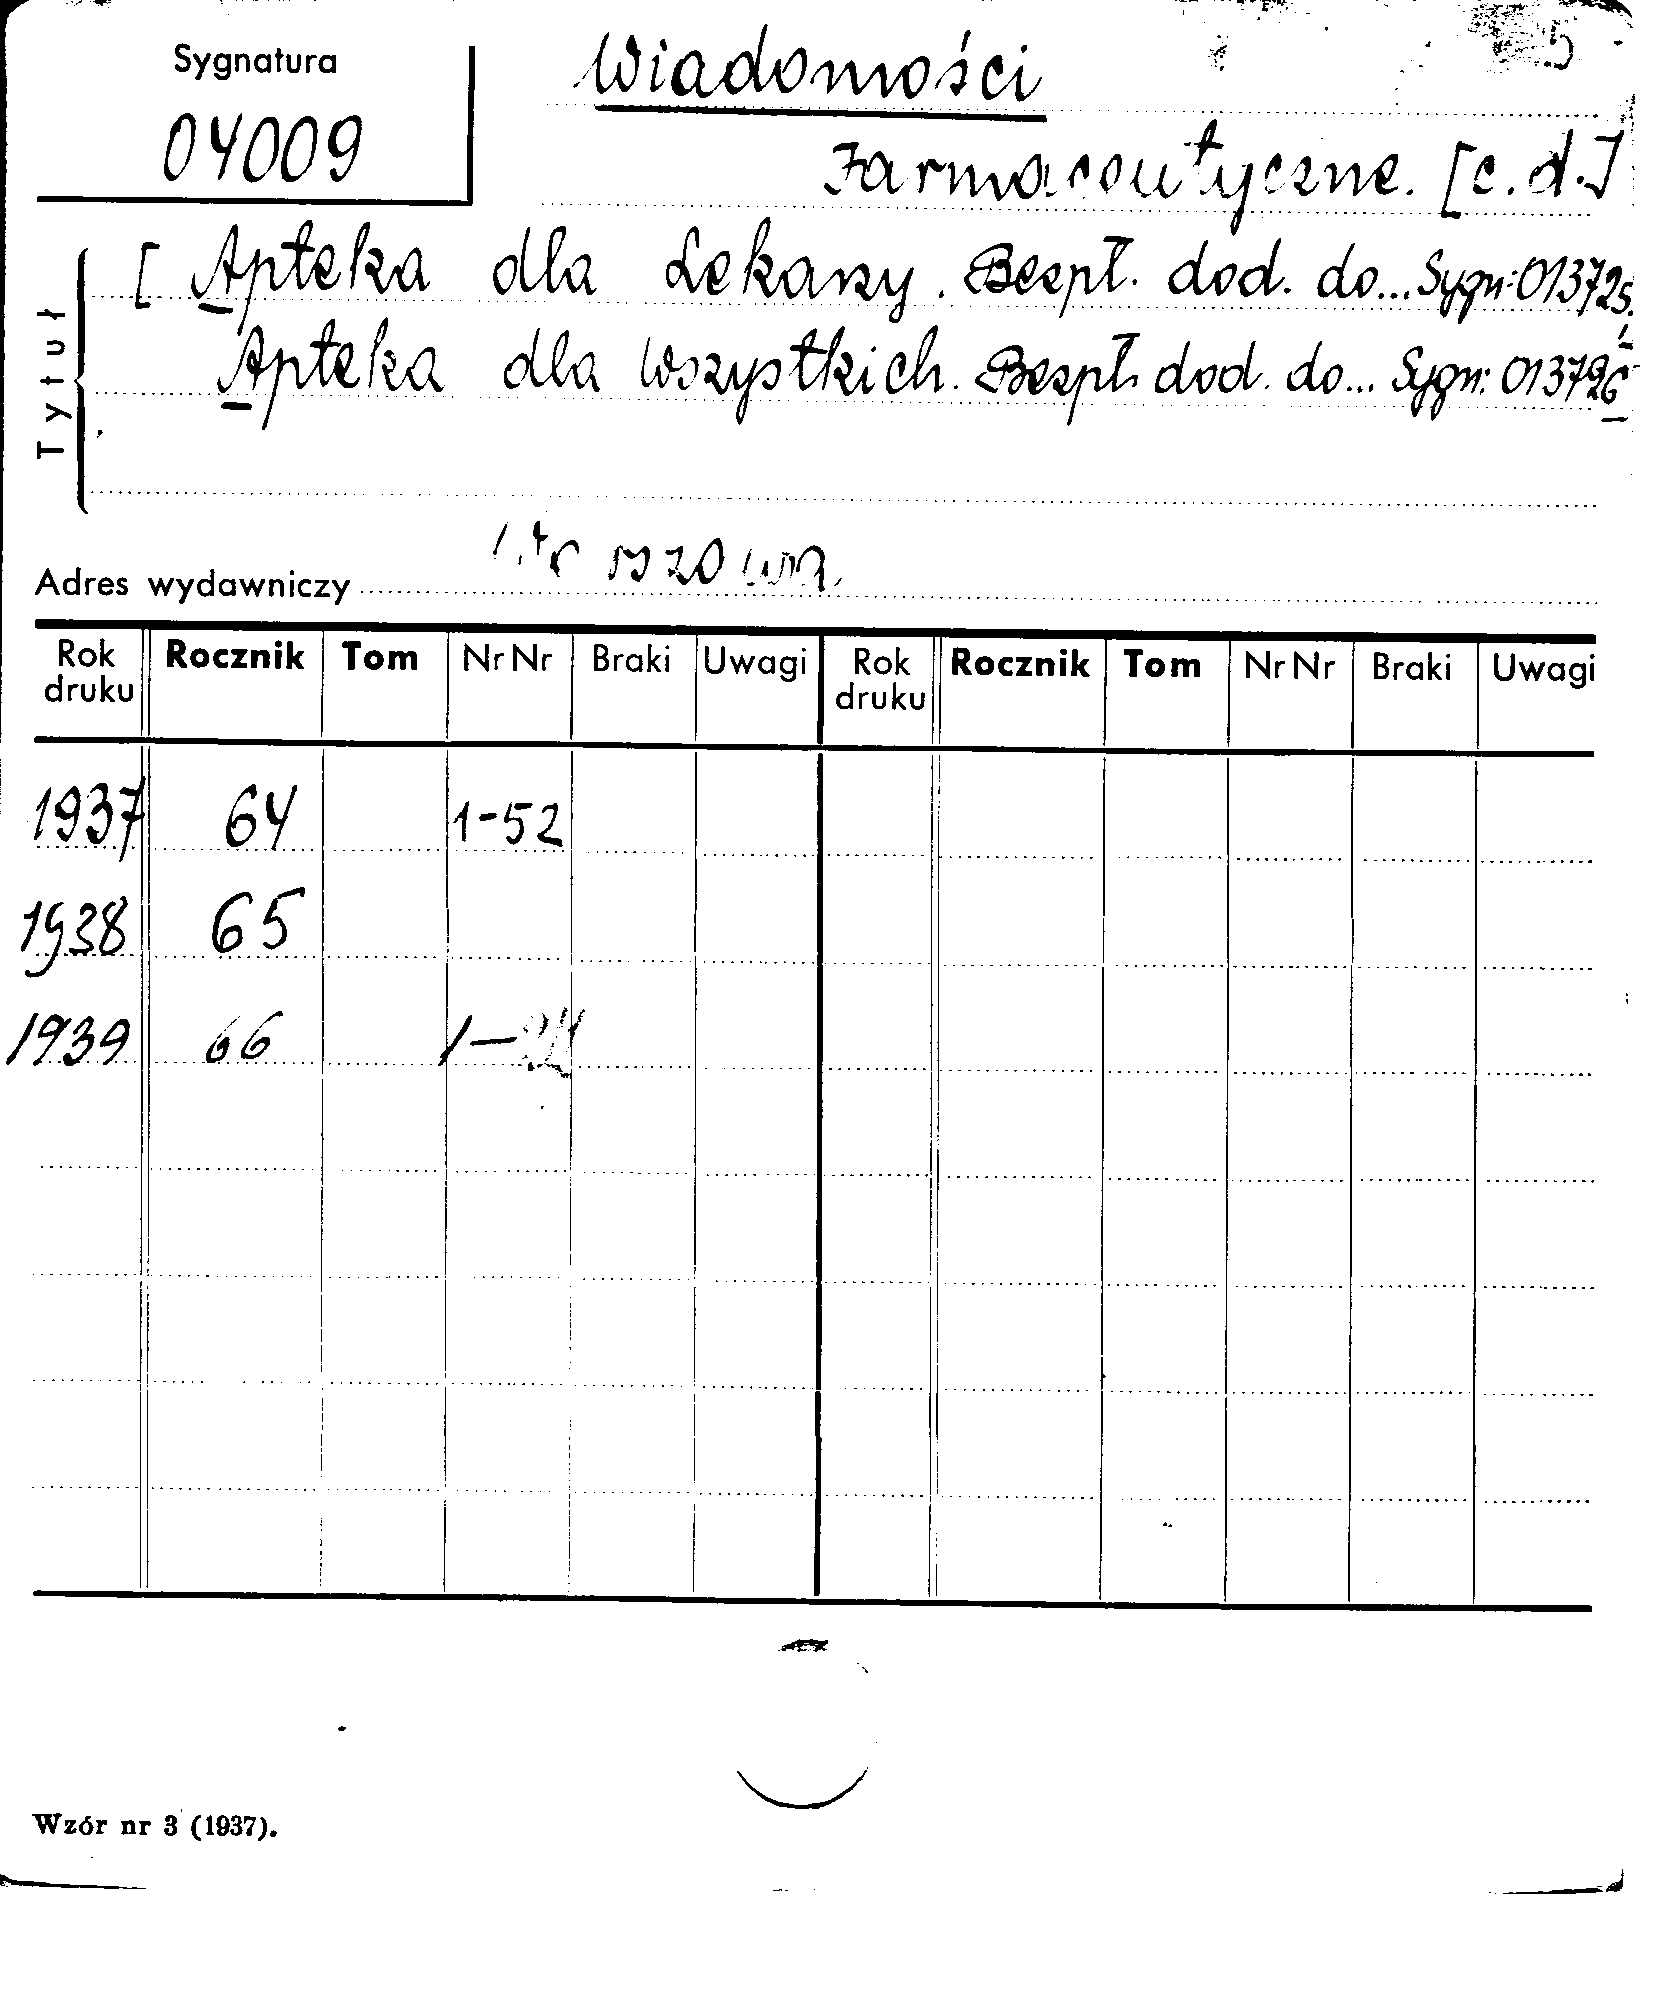 5
Sygnatura
04009
Wiadomości
Farmaceutyczne. [c.d.]
Tytuł
[ Apteka dla Lekarzy. Bezpł. dod. do... Sygn: 013725.
Apteka dla Wszystkich. Bezpł. dod. do... Sygn: 013726
Adres wydawniczy
Rok druku Rocznik Tom Nr Nr Braki Uwagi Rok druku Rocznik Tom Nr Nr Braki Uwagi
1937 64 1-52
1938 65
1939 66 1-
Wzór nr 3 (1937).